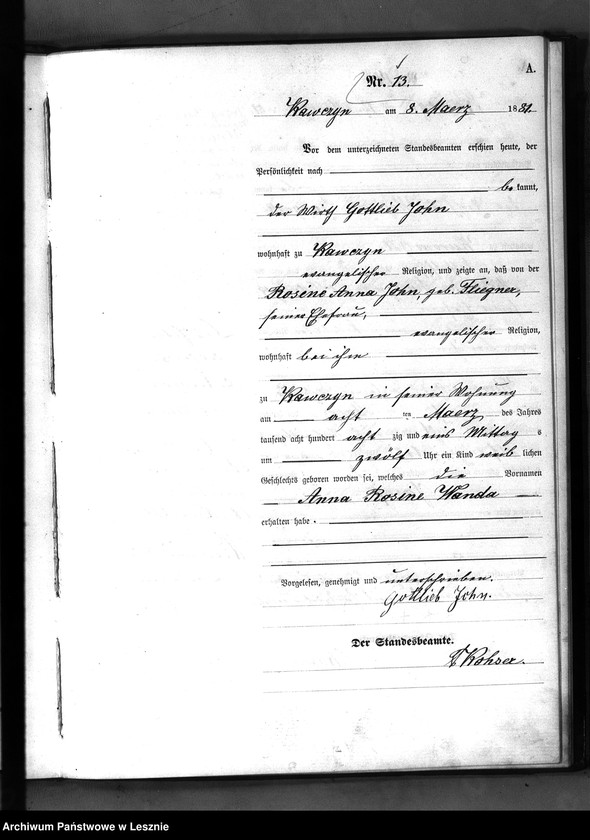 A.
Nr. 13.
Kawczyn am 8. Maerz 1881.
Vor dem unterzeichneten Standesbeamten erschien heute, der
Persönlichkeit nach
bekannt,
der Wirth Gottlieb John
wohnhaft zu Kawczyn
evangelischer Religion, und zeigte an, daß von der
Rosine Anna John, geb. Fliegner,
seiner Ehefrau,
evangelischer Religion,
wohnhaft bei ihm
zu Kawczyn in seiner Wohnung
am acht ten Maerz des Jahres
tausend acht hundert acht zig und eins Mittag s
um zwölf Uhr ein Kind weib lichen
Geschlechts geboren worden sei, welches die Vornamen
Anna Rosine Wanda
erhalten habe.
Vorgelesen, genehmigt und unterschrieben.
Gottlieb John.
Der Standesbeamte.
Archiwum Państwowe w Lesznie